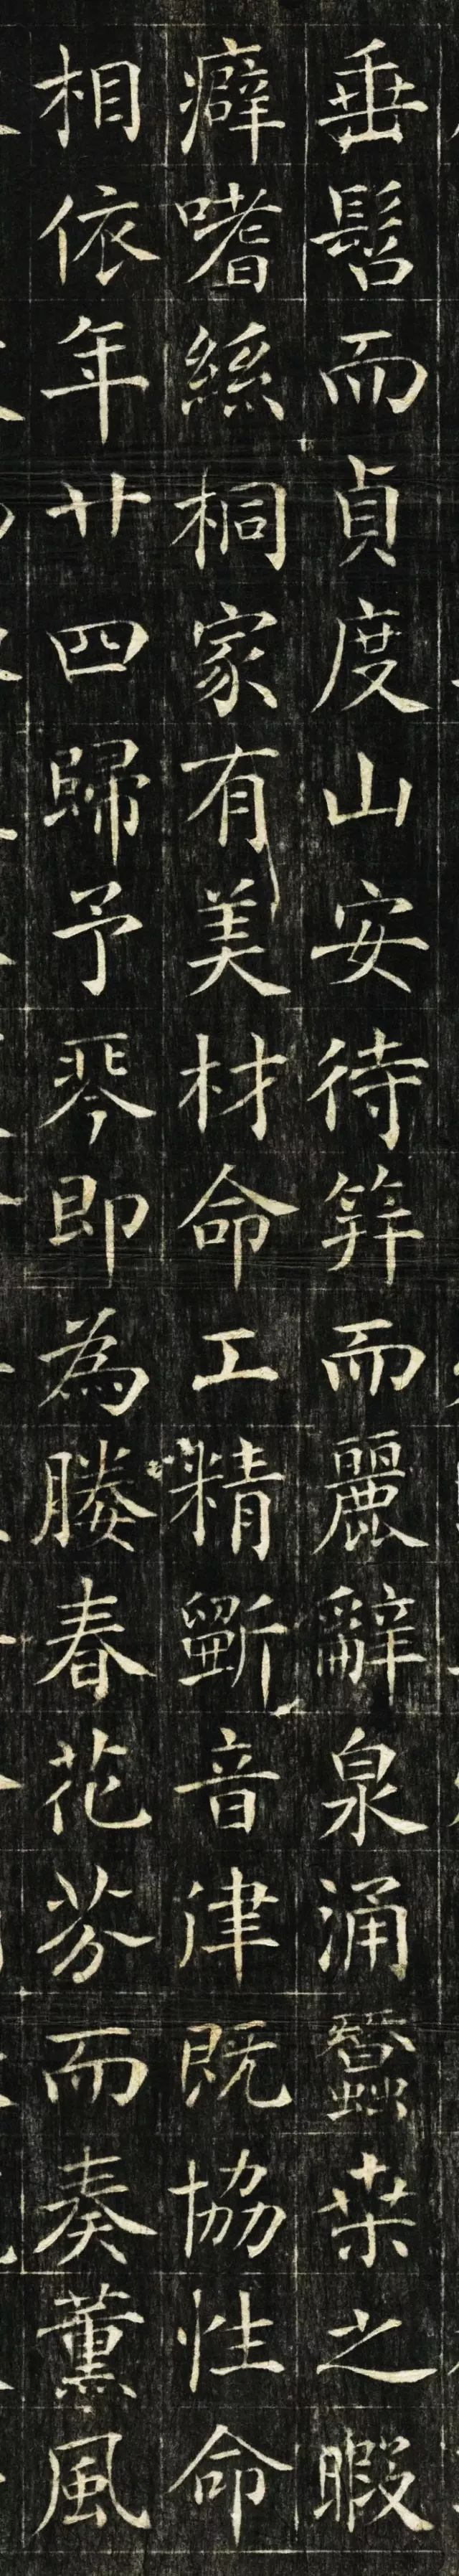 垂髫而貞度山安待笄而麗辭泉涌蠶桒之暇
癖嗜絲桐家有美材命工精斲音律既協性命
相依年廿四歸予琴即為媵春花芬而奏薰風